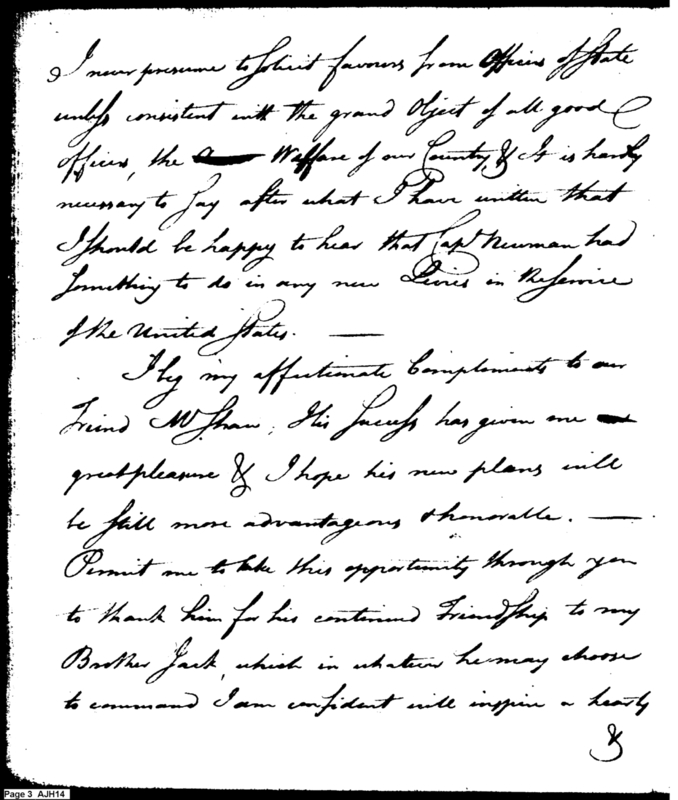 I never presume to solicit favours from Officers of State
unless consistent with the grand Object of all good
officers, the Wellfare of our Country, & It is hardly
necessary to say after what I have written that
I should be happy to hear that Capt Newman had
something to do in any new Levies in the Service
of the United States. —
I beg my affectionate Compliments to our
Friend Mr Shaw; His Success has given me
great pleasure & I hope his new plans will
be still more advantageous & honorable. —
Permit me to take this opportunity through you
to thank him for his continued Friendship to my
Brother Jack, which in whatever he may choose
to command I am confident will inspire a hearty
&
Page 3 AJH14